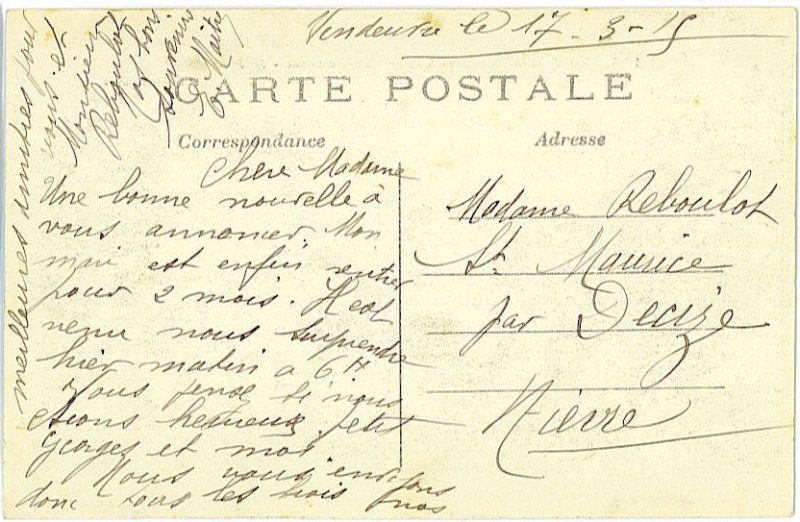 Vendeuvre le 17-3-15
CARTE POSTALE
Correspondance
Adresse
Chere Madame
Une bonne nouvelle à
vous annoncer. Mon
mari est enfin rentrer
pour 2 mois. Il est
venu nous surprendre
hier matin a 6 H
Vous pensez si nous
étions heureux petit
Georges et moi
Nous vous envoyons
donc tous les trois nos
meilleures amitiés pour
vous et
Monsieur
Reboulot
Vos bons
souvenirs
Madame Reboulot
St Maurice
par Decize
Nièvre